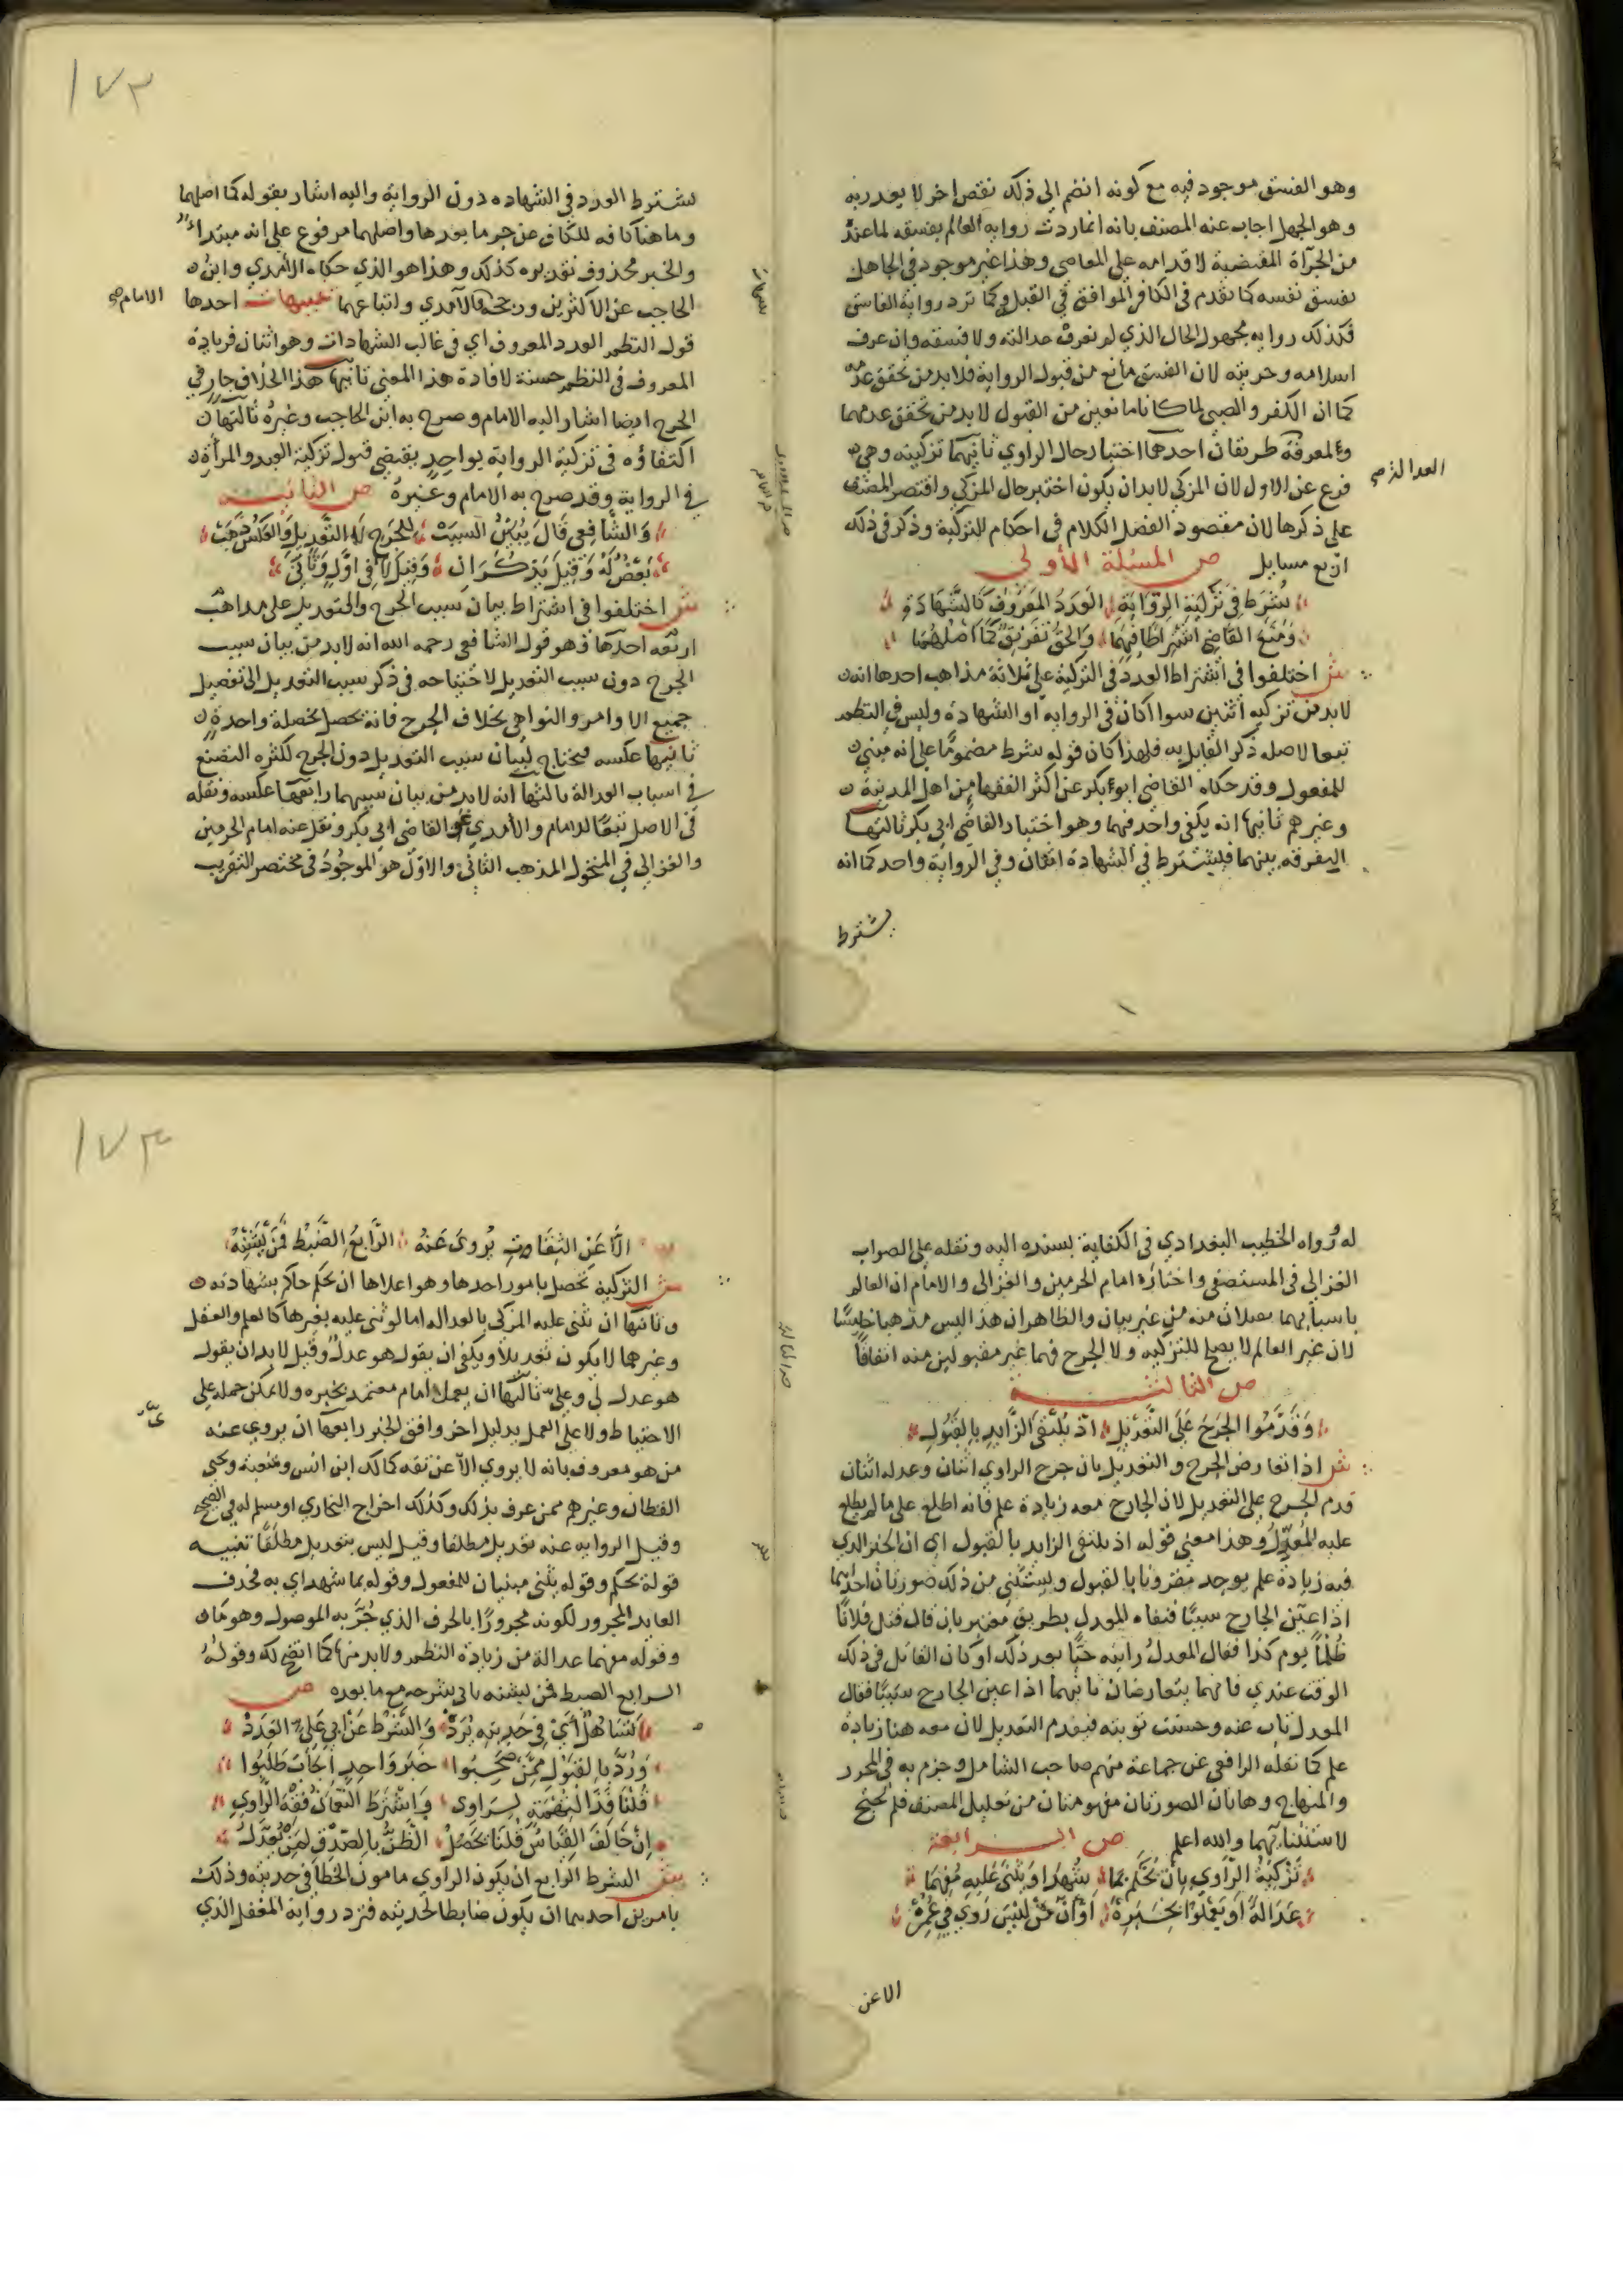 وهو الفسق موجود فيه مع كونه انضم الى ذلك نقص اخر لا يعذر به
وهو الجهل اجاب عنه المصنف بانه انما ردت رواية العالم بفسقه لما عنده
من الجرآة المقتضية لاقدامه على المعاصي وهذا غير موجود في الجاهل
بفسق نفسه كما تقدم في الكافر الموافق في القبلة وكما ترد رواية الفاسق
فكذلك رواية مجهول الحال الذي لم تعرف عدالته ولا فسقه وان عرف
اسلامه وحريته لان الفسق مانع من قبول الرواية فلا بد من تحقق عدمه
كما ان الكفر والصبي لما كانا مانعين من القبول لا بد من تحقق عدمهما
ولمعرفة طريقان احدهما اختبار حال الراوي ثانيهما تزكيته وهي
العدالة صح
فرع عن الاول لان المزكي لابد ان يكون اختبر حال المزكي واقتصر المصنف
على ذكرها لان مقصود الفصل الكلام في احكام التزكية وذكر في ذلك
اربع مسايل ص المسئلة الأولى
شُرِط في تزكية الرواية العدد المعروف كالشهادة
ومنع القاضي اشتراطا فيهما والحق تفريق كما اصلهما
ش اختلفوا في اشتراط العدد في التزكية على ثلاثة مذاهب احدها انه
لابد من تزكية اثنين سوا اكان في الرواية او الشهادة وليس في النظم
تبعا لاصله ذكر القايل به فلهذا كان قوله شرط مضموما على انه مبني
للمفعول وقد حكاه القاضي ابو بكر عن اكثر الفقها من اهل المدينة
وغيرهم ثانيها انه يكفي واحد فيهما وهو اختيار القاضي ابي بكر ثالثها
التفرقه بينهما فيشترط في الشهادة اثنان وفي الرواية واحد كما انه
يشترط
١٧٣
يشترط العدد في الشهاده دون الرواية واليه اشار بقوله كما اصلهما
وما هنا كافه للكاف عن جر ما بعدها واصلهما مرفوع على انه مبتداء
والخبر محذوف تقديره كذلك وهذا هو الذي حكاه الآمدي وابن
الحاجب عن الاكثرين ورجحه والآمدي واتباعهما تنبيهات احدها
الامام صح
قول النظم العدد المعروف اي في غالب الشهادات وهو اثنان فزيادة
المعروف في النظم حسنة لافادة هذا المعنى ثانيها هذا الخلاف جار في
الجرح ايضا اشار اليه الامام وصرح به ابن الحاجب وغيره ثالثها
اكتفاؤه في تزكية الرواية بواحد يقتضي قبول تزكية العبد والمرأة
في الرواية وقد صرح به الامام وغيره ص الثانية
والشافعي قال يبين السبب للجرح لا التعديل والعكس ذهب
بعض له وقيل يذكران وقيل لا في اول وثاني
ش اختلفوا في اشتراط بيان سبب الجرح والتعديل على مذاهب
اربعه احدها وهو قول الشافعي رحمه الله انه لابد من بيان سبب
الجرح دون سبب التعديل لاحتياجه في ذكر سبب التعديل الى تفصيل
جميع الاوامر والنواهي بخلاف الجرح فانه يحصل بخصلة واحدة
ثانيها عكسه فيحتاج لبيان سبب التعديل دون الجرح لكثرة التصنع
في اسباب العدالة ثالثها انه لابد من بيان سببهما رابعها عكسه ونقله
في الاصل تبعا للامام والآمدي عن القاضي ابي بكر ونقل عنه امام الحرمين
والغزالي في المنخول المذهب الثاني والاول هو الموجود في مختصر التقريب
له ورواه الخطيب البغدادي في الكفاية بسنده اليه ونقله على الصواب
الغزالي في المستصفى واختاره امام الحرمين والغزالي والامام ان العالم
باسبابهما يقبلان منه من غير بيان والظاهر ان هذا ليس مذهبا خامسا
لان غير العالم لا يصح للتزكية ولا الجرح فهما غير مقبولين منه اتفاقا
ص الثالثة
وقدموا الجرح على التعديل اذ يلتقى الزايد بالقبول
ش اذا تعارض الجرح والتعديل بان جرح الراوي اثنان وعدله اثنان
قدم الجرح على التعديل لان الجارح معه زيادة علم فانه اطلع على ما لم يطلع
عليه المعدل وهذا معنى قوله اذ يلتقى الزايد بالقبول اي ان الخبر الذي
فيه زيادة علم يوجد مقرونا بالقبول ويستثنى من ذلك صورتان احداهما
اذا عين الجارح سببا فنفاه المعدل بطريق معتبر بان قال قتل فلانا
ظلما يوم كذا فقال المعدل رايته حيا بعد ذلك او كان القاتل في ذلك
الوقت عندي فانهما يتعارضان ثانيهما اذا عين الجارح سببا فقال
المعدل تاب عنه وحسنت توبته فيقدم التعديل لان معه هنا زيادة
علم كما نقله الرافعي عن جماعة منهم صاحب الشامل وجزم به في المحرر
والمنهاج وهاتان الصورتان مفهومتان من تعليل المصنف فلم يحتج
لاستثنايهما والله اعلم ص الرابعة
تزكية الراوي بان يحكم بما يشهد او يثنى عليه مفهما
عدالة او يعملوا بخبره او ان من ليس روى في عمره
الا عن
١٧٤
الا عن الثقات يروى عنه الرابع الضبط فمن يشنه
ش التزكية تحصل بامور احدها وهو اعلاها ان يحكم حاكم بشهادته
وثانيها ان يثني عليه المزكي بالعدالة اما لو اثنى عليه بغيرها كالعلم والعقل
وغيرهما لا يكون تعديلا ويكفي ان يقول هو عدل وقيل لابد ان يقول
هو عدل لي وعلي ثالثها ان يعمل امام معتمد بخبره ولا يمكن حمله على
الاحتياط ولا على العمل بدليل اخر وافق الخبر رابعها ان يروي عنه
من هو معروف بانه لا يروي الا عن ثقه كمالك ابن انس وشعبة ويحيى
القطان وغيرهم ممن عرف بذلك وكذلك اخراج البخاري او مسلم له في الصحيح
وقيل الرواية عنه تعديل مطلقا وقيل ليس بتعديل مطلقا تنبيه
قوله يحكم وقوله يثنى مبنيان للمفعول وقوله بما شهد اي به فحذف
العايد المجرور لكونه مجرورا بالحرف الذي جر به الموصول وهو ما
وقوله مفهما عدالة من زيادة النظم ولابد منها كما اتضح لك وقوله
الرابع الضبط فمن يشنه ياتي شرحه مع ما بعده ص
تساهل اي في حديثه يرد والشرط عن ابي علي العدد
ورد بالقبول ممن صحبوا خبر واحد اكان طلبوا
قلنا فذا لتهمة لراوي واشترط النعمان فقه الراوي
ان خالف القياس قلنا يحصل الظن بالصدق لمن يعدل
ش الشرط الرابع ان يكون الراوي مامون الخطا في حديثه وذلك
بامرين احدهما ان يكون ضابطا لحديثه فترد رواية المغفل الذي